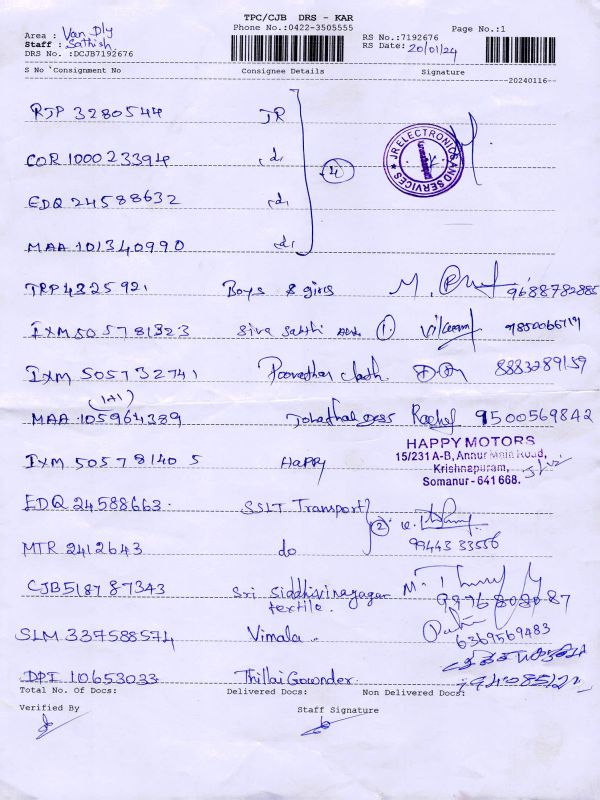 TPC/CJB DRS - KAR
Phone No.:0422-3505555
Area : Van Dly
Staff : Sathish
DRS No. :DCJB7192676
RS No.:7192676
RS Date: 20/01/24
Page No.:1
S No Consignment No Consignee Details Signature
20240116
RJP 3280544 JR
COR 100023394 ,d,
EDQ 24588632 ,d,
MAA 101340990 ,d,
(4)
JR ELECTRONICS AND SERVICES
TRP 4325921 Boys & girls 9688782885
IXM 505781323 Siva Sakthi (1)
IXM 505732741 8883289159
(1+1)
MAA 105964389 9500569842
IXM 505781405 HAPPY
HAPPY MOTORS
15/231 A-B, Annur Main Road,
Krishnapuram,
Somanur - 641 668.
EDQ 24588663. SSLT Transport (2)
MTR 2412643 do 99443 33556
CJB 518787343 Sri Siddhivinayagar
textile.
SLM 337588574 Vimala 6369569483
DPI 10653033 Thillai Gounder
Total No. Of Docs: Delivered Docs: Non Delivered Docs:
Verified By Staff Signature